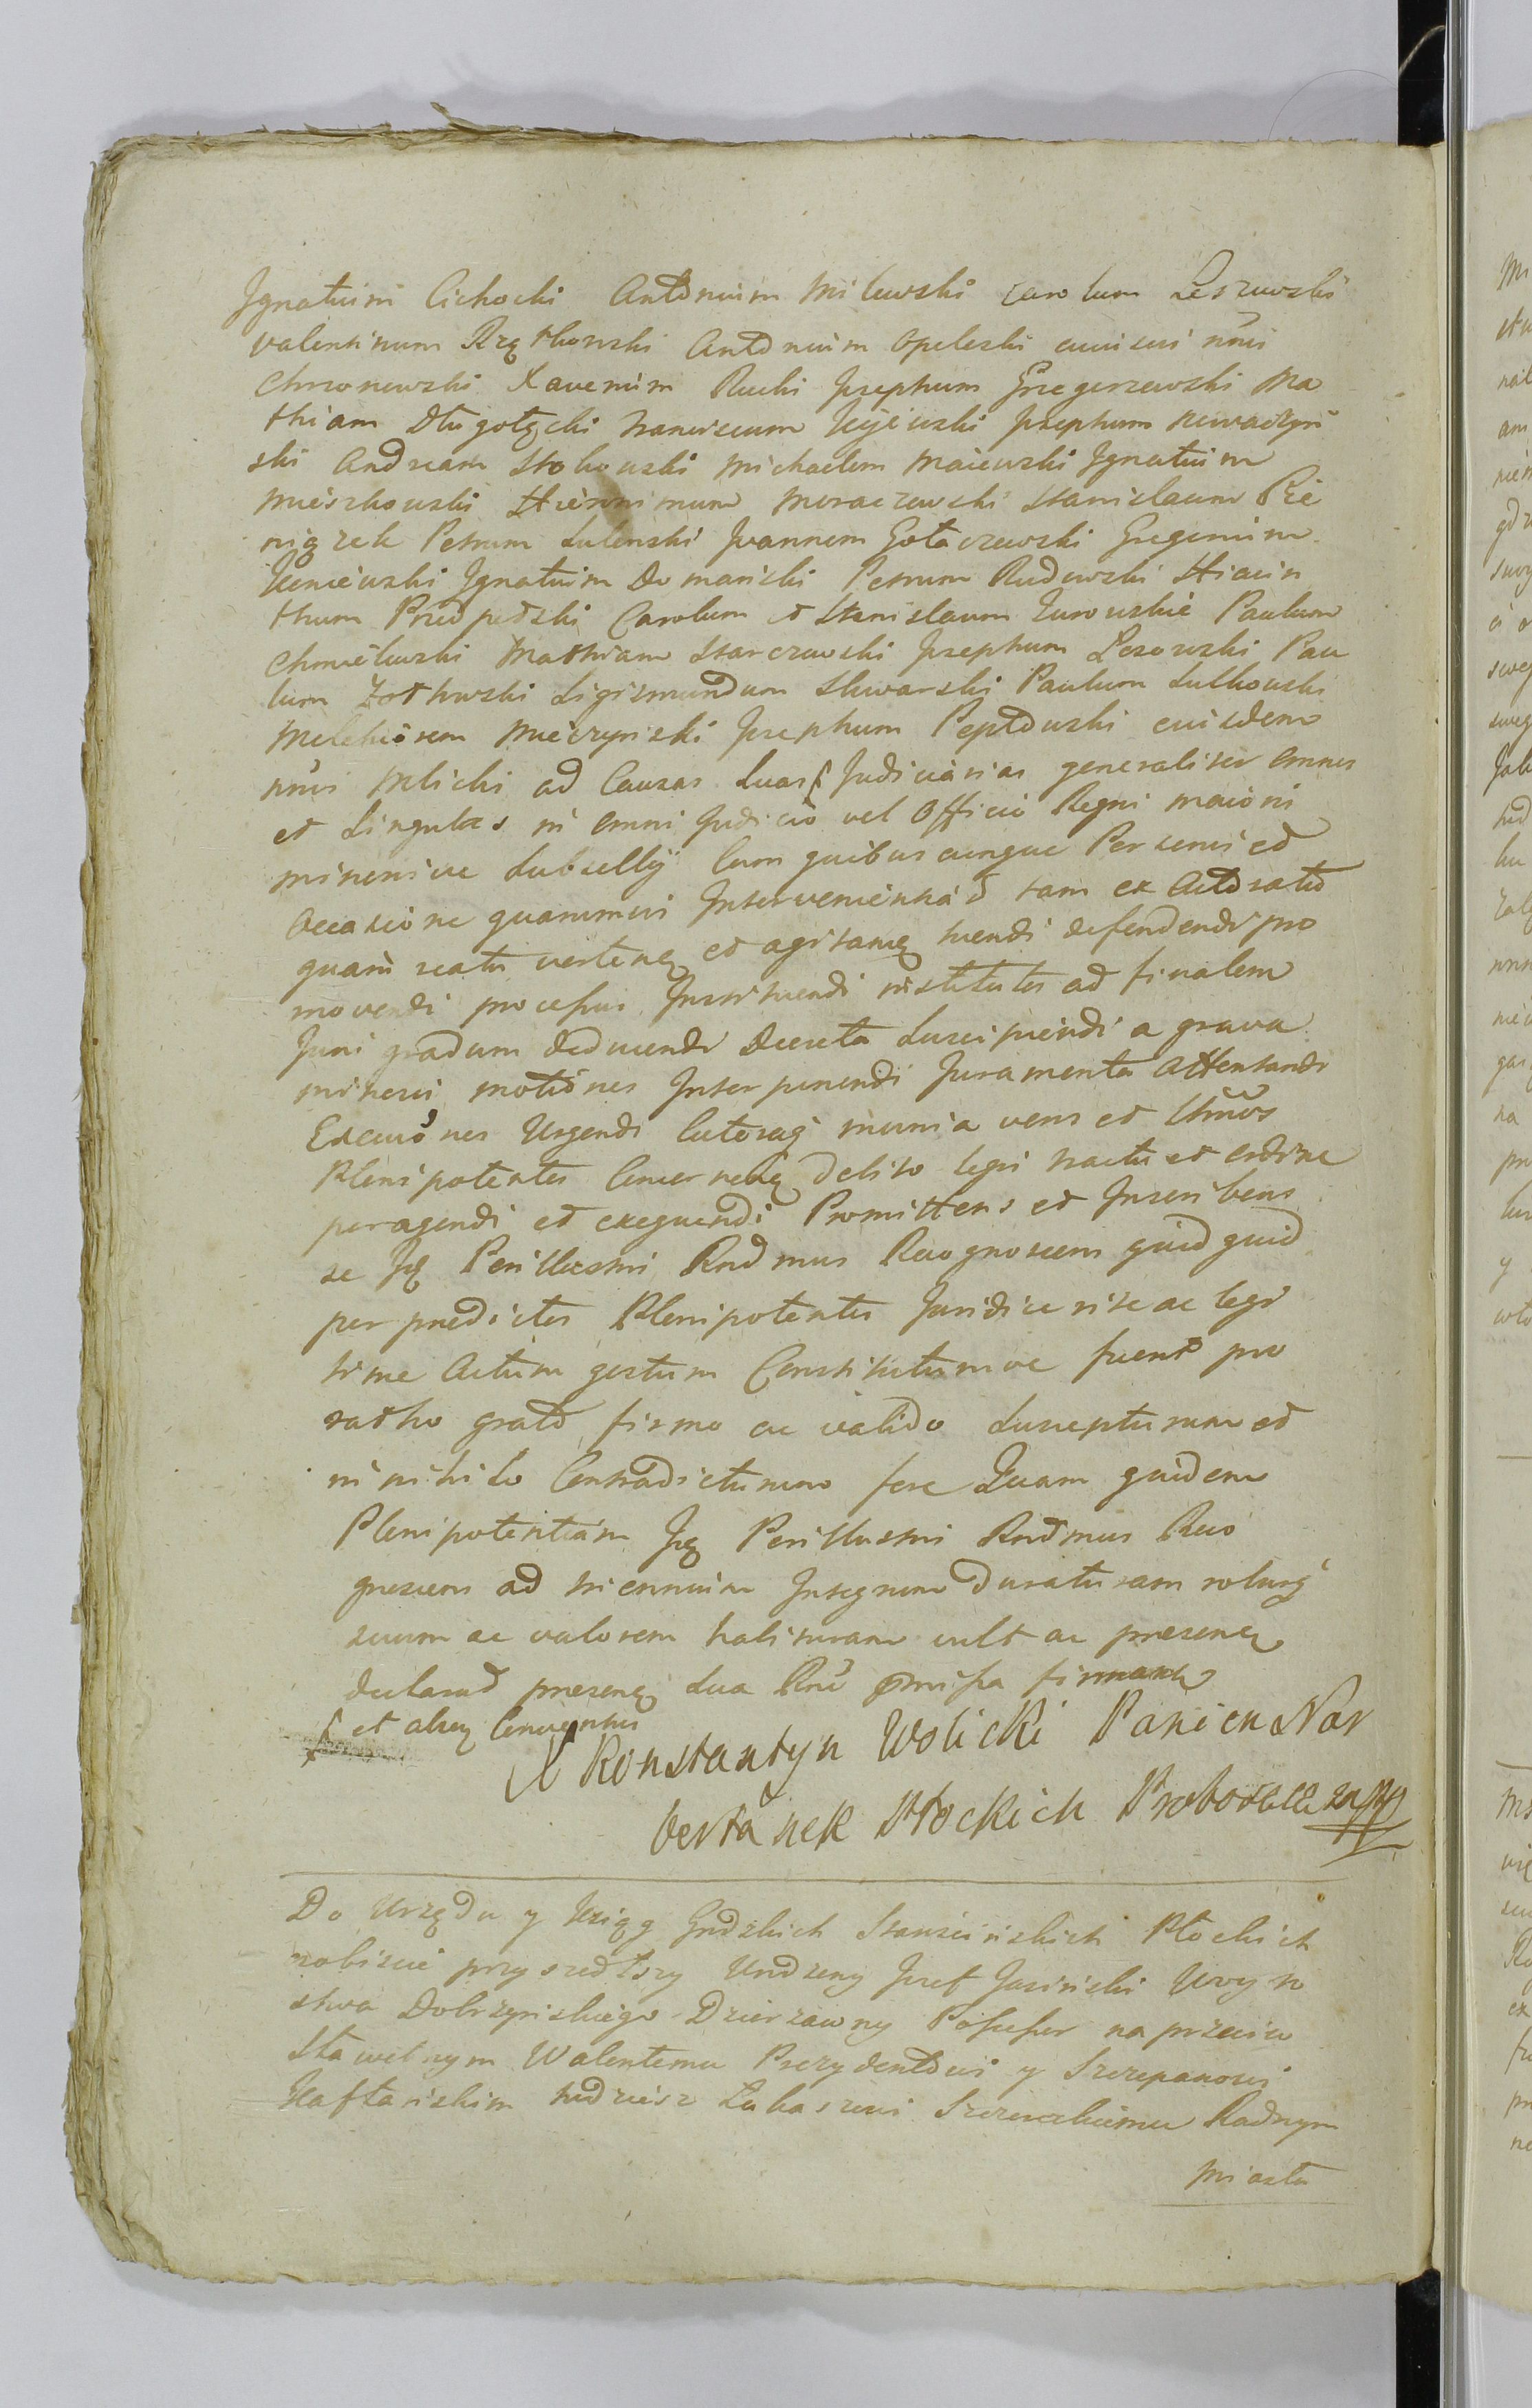 Ignatium Cichocki Antonium Milewski Carolum Leszewski
Valentinum Rzęthowski Antonium Opeleski
Chrzonowski Xaverium Rucki Josephum Grzegorzewski Ma
thiam Długołęcki Franciscum Kijewski Josephum Nowaczyń
ski Andream Stokowski Michaelem Maiewski Ignatium
Mieszkowski Hieronimum Moraczewski Stanislaum Pie
niązek Petrum Lulenski Joannem Gołaczewski Gregorium
Kieniewski Ignatium Domanski Petrum Rudowski Hiacin
thum Przedpełski Carolum et Stanislaum Zurowskie Paulum
Chmielewski Mathiam Starczewski Josephum Lesowski Pau
lum Zothowski Sigismundum Skwarski Paulum Sulkowski
Melchiorem Mieczynski Josephum Peptowski eiusdem
nnis Mlicki ad Causas Suas Judiciarias generaliter omnes
et Singulas in omni Judicio vel Officio Regni maioris
minorisve Subsellij Cum quibuscunque Personis et
Occasione quarumvis Intervenientiad tam ex Actoratu
quam reatu vertenę et agitanę tuendi defendendi pro
movendi processus Instituendi institutos ad finalem
Juris gradum deducendi Decreta Suscipiendi a grava
minesvi motiones Interponendi Juramenta Attentandi
Exeuõnes Urgendi Cuteraq munia vens et Ultmõs
Plenipotentes Concernenę debito legis tractu et ordine
peragendi et exequendi Promittens et Inscribens
se Jdę Perillustris Rndmus Recognoscens quidquid
per predictos Plenipotentes Juridice rite ac legi
time Actum gestum Constitutumve fuerit pro
ratho grato firmo ac valido Suscepturum et
in nihilo Contradicturum fore Quam quidem
Plenipotentiam Jdę Perillustris Rndmus Reco
gnoscens ad triennium Integrum Duraturam roburq
suum ac valorem habituram vult ac presenę
declarat presenę Sua Rni
et alsuę Convenntis
X Konstantyn Wolicki Panien Nor
bertanek Płockich Proboszcz mpp
Do Urzędu y Xiąg Grdzkich Starościńskich Płockich
osobiscie przyszedłszy Urodzony Jozef Jasiński Woy to
stwa Dobrzynskiego Dzierzawny Possessor naprzeciw
Sławetnym Walentemu Prezydentowi y Szczepanowi
Kaftańskim tudziesz Łukaszewi Szczeuskiemu Radnym
Miasta